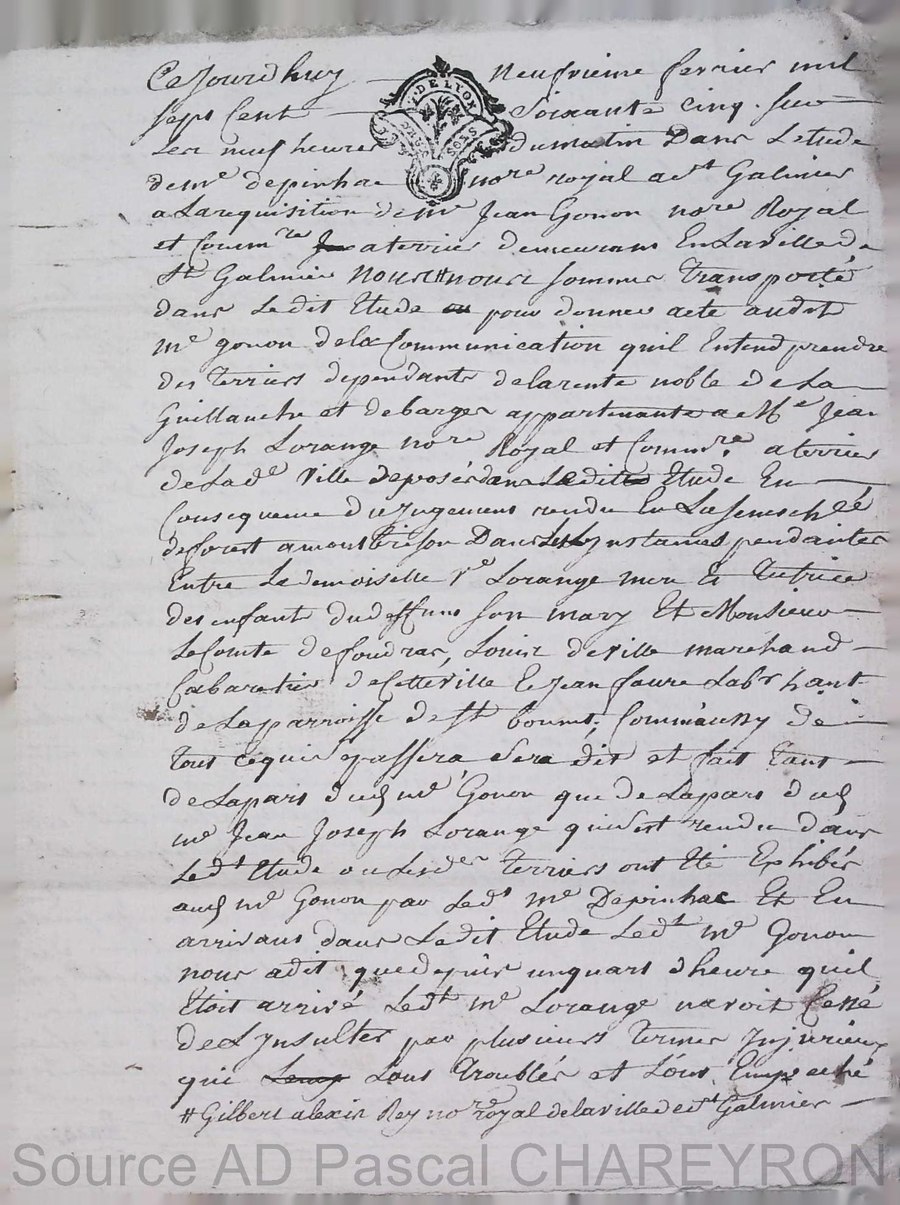 Ce Jourdhuy neufvieme fevrier mil
DE LYON
sept Cent soixante cinq. sur
SOLS
Les neuf heures du matin Dans Letude
de me depinhac nore royal a st Galmier
a Larequisition de me Jean Gonon nore Royal
et Commre a terrier demeurant En Laville de
st Galmier nous # nous sommes transporté
dans Ledit Etude pour donner acte audit
me gonon dela Communication quil Entend prendre
des terriers dependants delarente noble de La
Guillanche et debarges appartenants a Me Jean
Joseph Lorange nore Royal et Commre a terrier
de Lade ville deposés dans Ledit Etude En
Consequence du jugement rendu En La senechée
deforest a montbrison Dans Les Instances pendantes
Entre Le demoiselle ve Lorange mere et tutrice
des enfant dudeffunt son mary Et Monsieur
Le Comte defoudras, Louis deville marchand
Cabaretier deCetteville Et Jean faure Labr hant
de Laparroisse de st bonnet, Comm'aussy de
tout cequi se passera sera dit et fait tant
de Lapart dud me Gonon que de Lapart dud
me Jean Joseph Lorange quisest rendu dans
Ledt Etude ou Lesdes terriers ont Eté Exhibés
aud me Gonon par Ledt me Depinhac Et En
arrivant dans Ledit Etude Ledt me Gonon
nous adit quedepuis unquart d'heure quil
Etoit arrivé Ledt me Lorange navoit Cessé
de L'ynsulter par plusieurs termes Injurieux
qui Lont troublés et L'ont Empeché
# Gilbert alexis Rey nore royal delaville de st Galmier
Source AD Pascal CHAREYRON